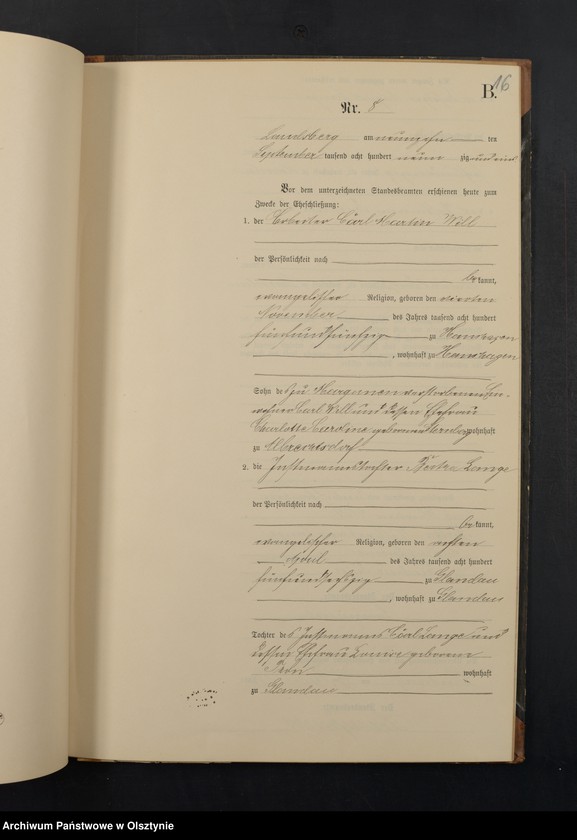 B.
16
Nr. 8
Landsberg am neunzehn ten
September tausend acht hundert neun zig und eins
Vor dem unterzeichneten Standesbeamten erschienen heute zum
Zwecke der Eheschließung:
1. der Arbeiter Carl Martin Will
der Persönlichkeit nach
be kannt,
evangelischer Religion, geboren den vierten
November des Jahres tausend acht hundert
fünfundfünfzig zu
, wohnhaft zu
Sohn des zu verstorbenen
Carl Will und dessen Ehefrau
Charlotte geborenen wohnhaft
zu Albrechtsdorf
2. die Instmannstochter Lange
der Persönlichkeit nach
be kannt,
evangelischer Religion, geboren den achten
April des Jahres tausend acht hundert
fünfundsechzig zu Glandau
, wohnhaft zu Glandau
Tochter des Instmanns Carl Lange und
dessen Ehefrau Louise geborenen
wohnhaft
zu Glandau
Archiwum Państwowe w Olsztynie